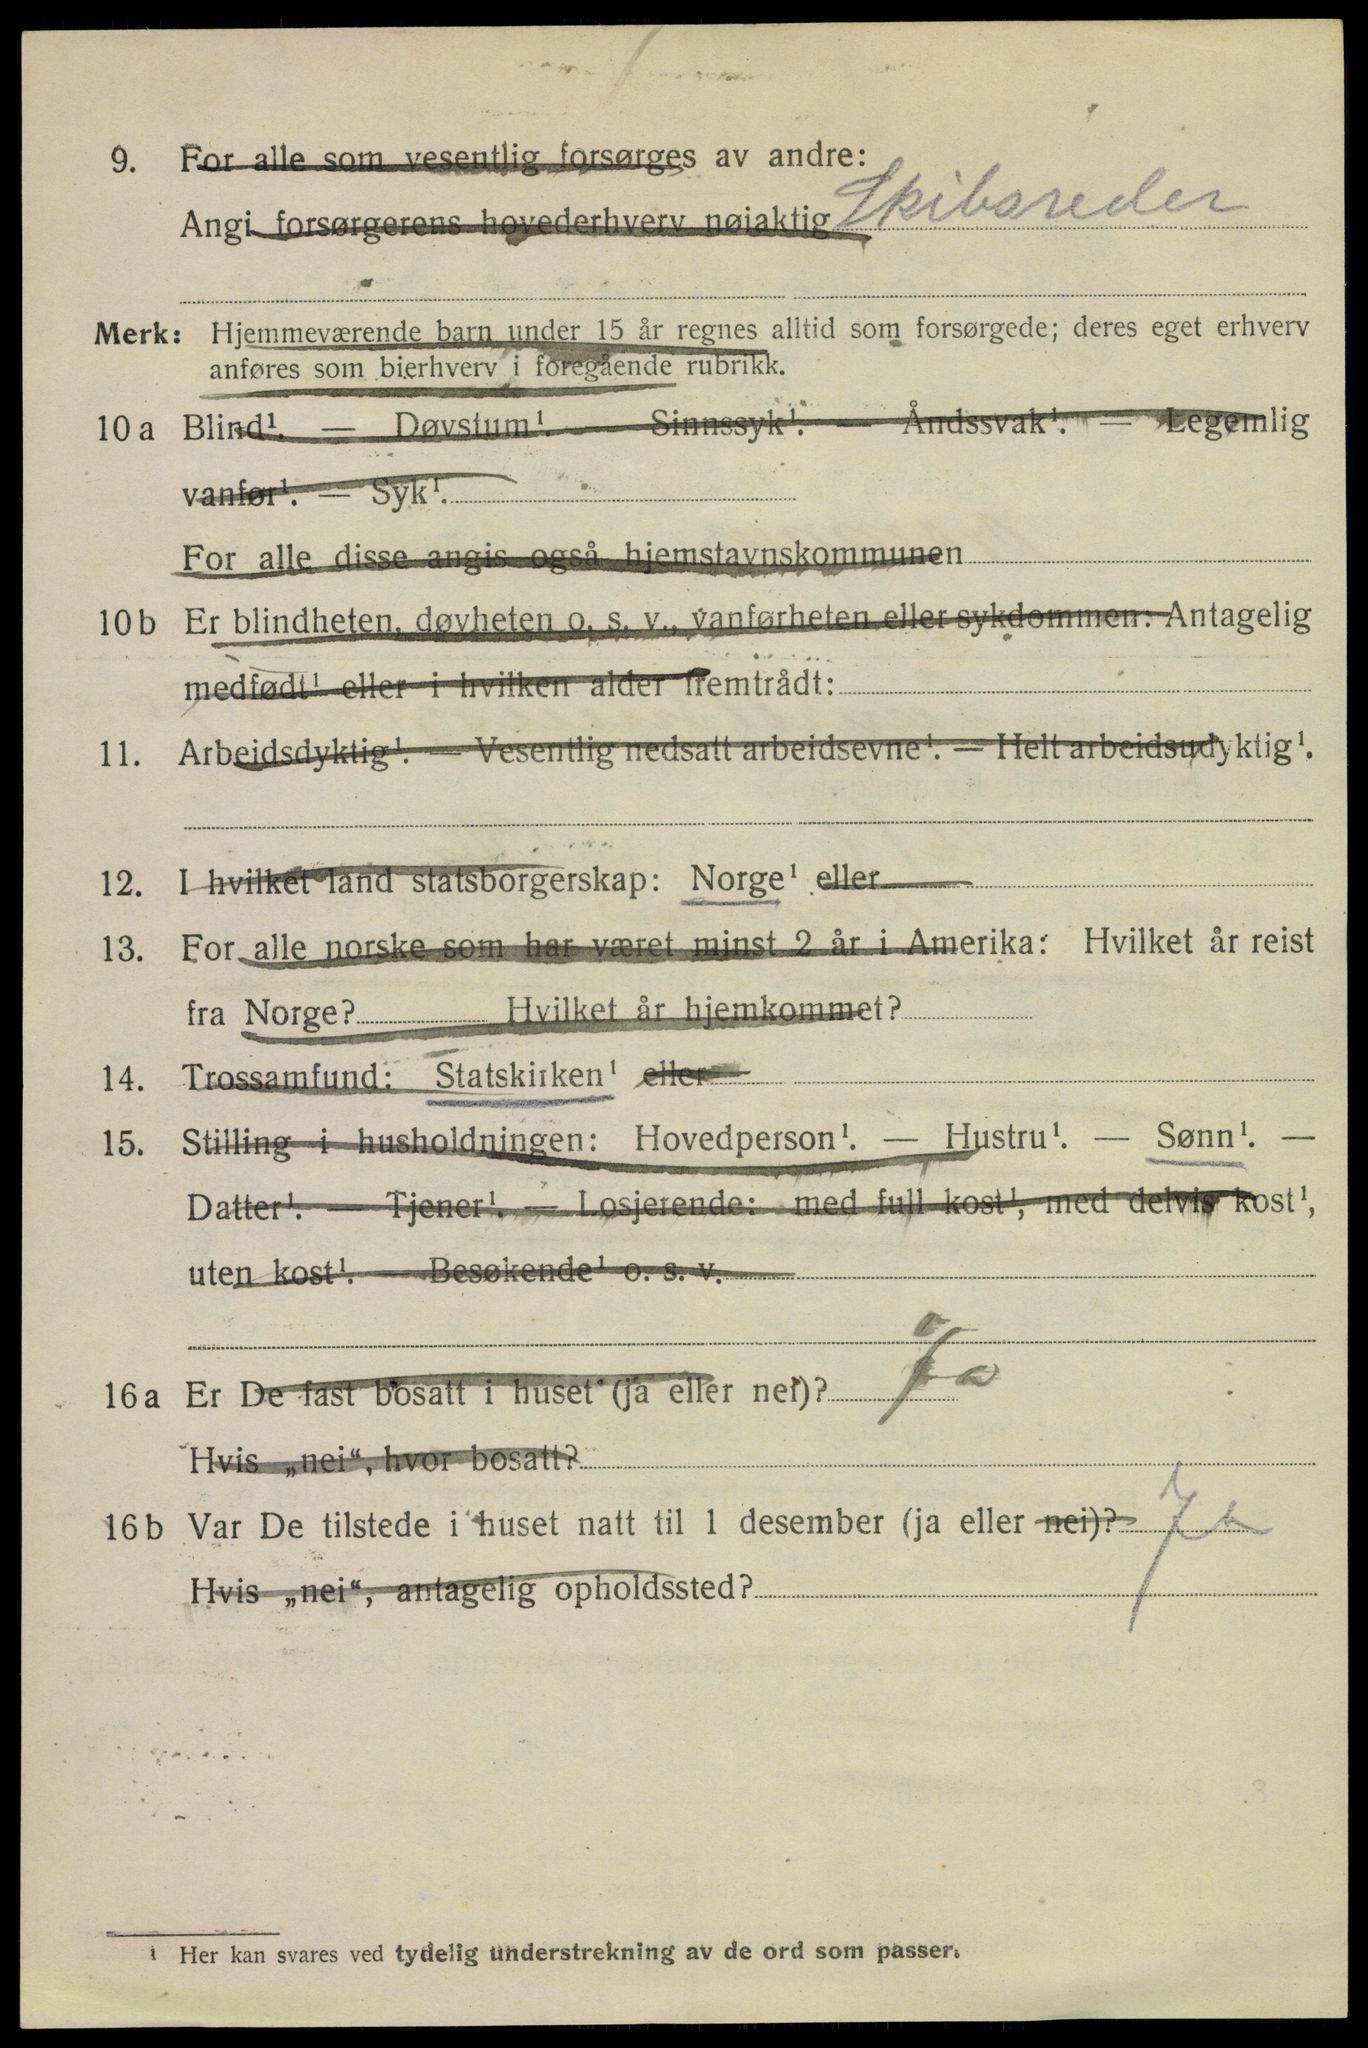 9. For alle som vesentlig forsørges av andre:
Angi forsørgerens hovederhverv nøiaktig Skibsreder
Merk: Hjemmeværende barn under 15 år regnes alltid som forsørgede; deres eget erhverv
anføres som bierhverv i foregående rubrikk.
10 a Blind¹. — Døvstum¹. — Sinnssyk¹. — Åndssvak¹. — Legemlig
vanfør¹. — Syk¹.
For alle disse angis også hjemstavnskommunen
10 b Er blindheten, døvheten o. s. v., vanførheten eller sykdommen: Antagelig
medfødt¹ eller i hvilken alder fremtrådt:
11. Arbeidsdyktig¹. — Vesentlig nedsatt arbeidsevne¹. — Helt arbeidsudyktig¹.
12. I hvilket land statsborgerskap: Norge¹ eller
13. For alle norske som har været minst 2 år i Amerika: Hvilket år reist
fra Norge? Hvilket år hjemkommet?
14. Trossamfund: Statskirken¹ eller
15. Stilling i husholdningen: Hovedperson¹. — Hustru¹. — Sønn¹. —
Datter¹. — Tjener¹. — Losjerende: med full kost¹, med delvis kost¹,
uten kost¹. — Besøkende¹ o. s. v.
16 a Er De fast bosatt i huset (ja eller nei)? Ja
Hvis „nei“, hvor bosatt?
16 b Var De tilstede i huset natt til 1 desember (ja eller nei)? Ja
Hvis „nei“, antagelig opholdssted?
¹ Her kan svares ved tydelig understrekning av de ord som passer.